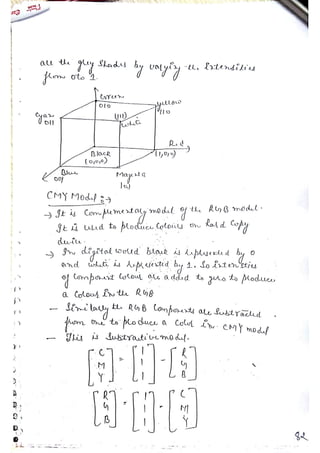 all the grey Shades by varying the Intensities
from 0 to 1.
Green
010
Yellow
110
Cyan
011
(111)
White
Red
(1,0,0)
Black
(0,0,0)
Blue
001
Magenta
101
CMY Model :→
→ It is Complementary model of the RGB model.
It is used to produce Colours on Hard Copy
device.
→ In digital world black is represented by 0
and white is represented by 1. So Intensities
of component Colour are added to zero to produce
a Colour In the RGB
- Similarly the RGB Components are Subtracted
from one to produce a Color in CMY model
- This is Subtractive model.
[C M Y] = [1 1 1] - [R G B]
[R G B] = [1 1 1] - [C M Y]
82